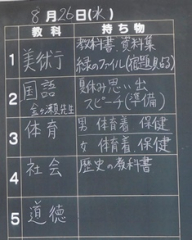 8月26日(水)
教科 持ち物
1 美術 教科書 資料集
緑のファイル(宿題
2 国語 夏休み思い出
先生 スピーチ(準備)
3 体育 男 体育着 保健
女 体育着 保健
4 社会 歴史の教科書
5 道徳